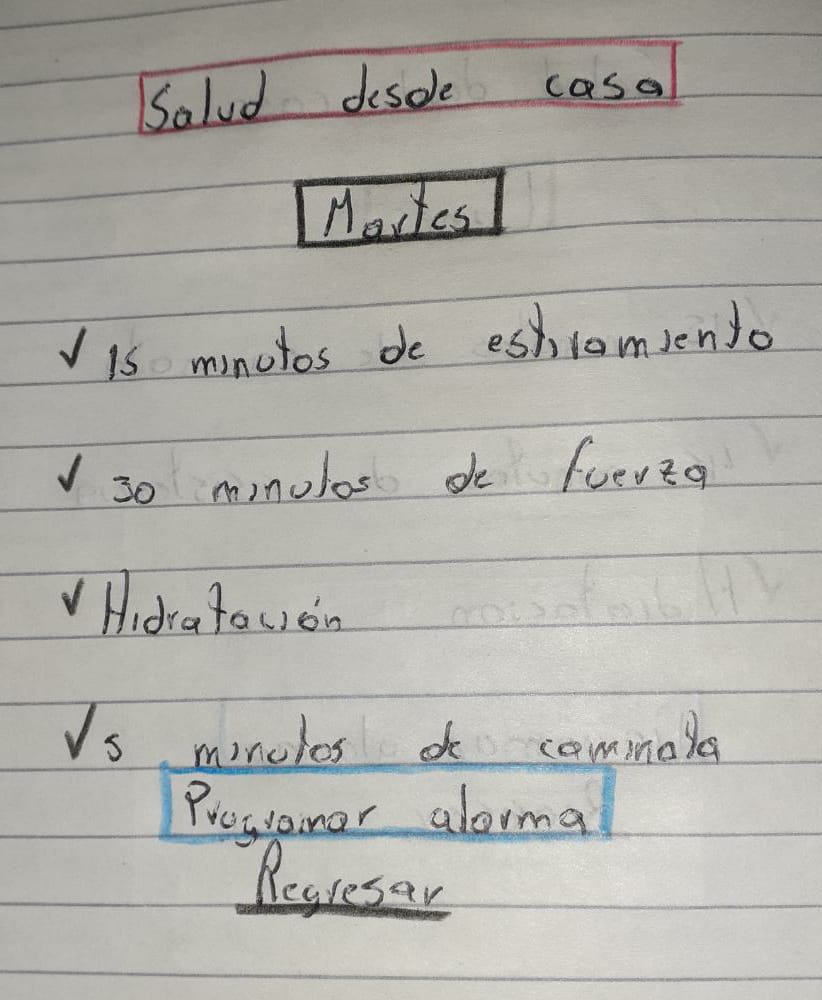 Salud desde casa
Martes
✓ 15 minutos de estiramiento
✓ 30 minutos de fuerza
✓ Hidratación
✓ 5 minutos de caminata
Programar alarma
Regresar